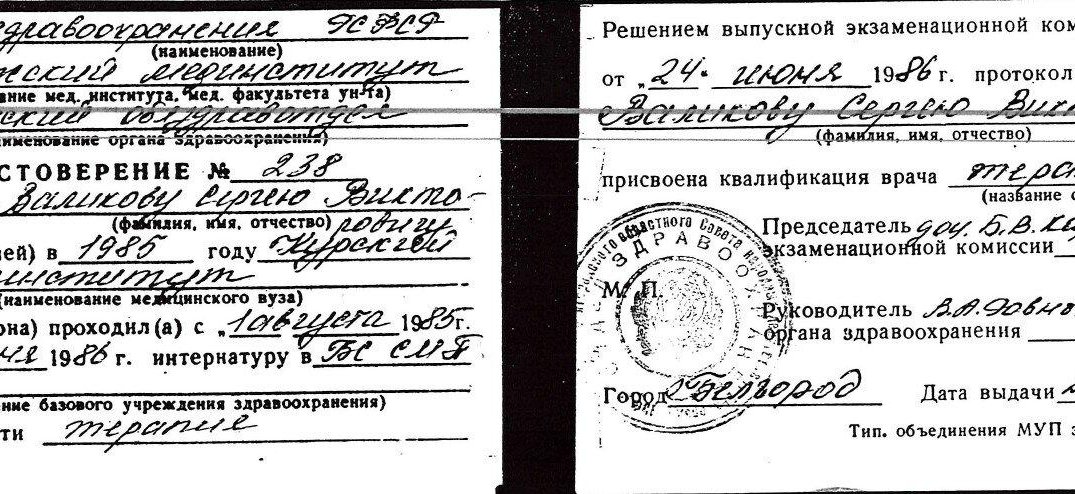 дравоохранения РСФСР
(наименование)
жский мединститут
ание мед. института, мед. факультета ун-та)
ский облздравотдел
именование органа здравоохранения)
СТОВЕРЕНИЕ № 238
Валикову Сергею Викто-
(фамилия, имя, отчество) ровичу
ей) в 1985 году Курский
институт
(наименование медицинского вуза)
она) проходил(а) с „1 августа 1985г.
ня 1986 г. интернатуру в БС СМП
ние базового учреждения здравоохранения)
ти терапие
Решением выпускной экзаменационной ком
от „24" июня 1986 г. протокол
Валикову Сергею Викт
(фамилия, имя, отчество)
присвоена квалификация врача тера
(название с
Председатель доц. Б.В.
экзаменационной комиссии
М. П.
Руководитель В.А.
органа здравоохранения
Город Белгород Дата выдачи
Тип. объединения МУП з
областного Совета народных
ЗДРАВООХРАНЕНИ